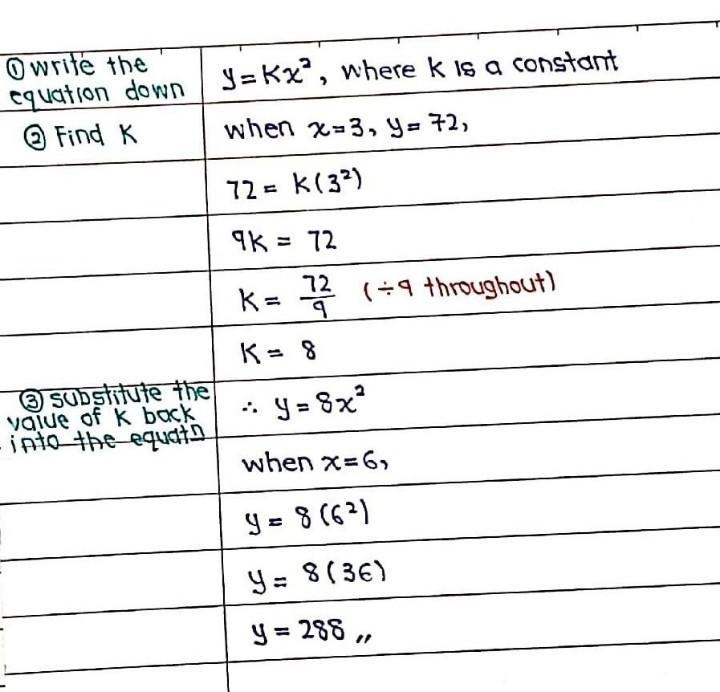 ① write the
equation down
y = Kx², where k is a constant
② Find K
when x=3, y= 72,
72 = K(3²)
9K = 72
K = 72/9 (÷9 throughout)
K = 8
③ substitute the
value of K back
into the equatn
∴ y = 8x²
when x=6,
y = 8(6²)
y = 8(36)
y = 288 ,,